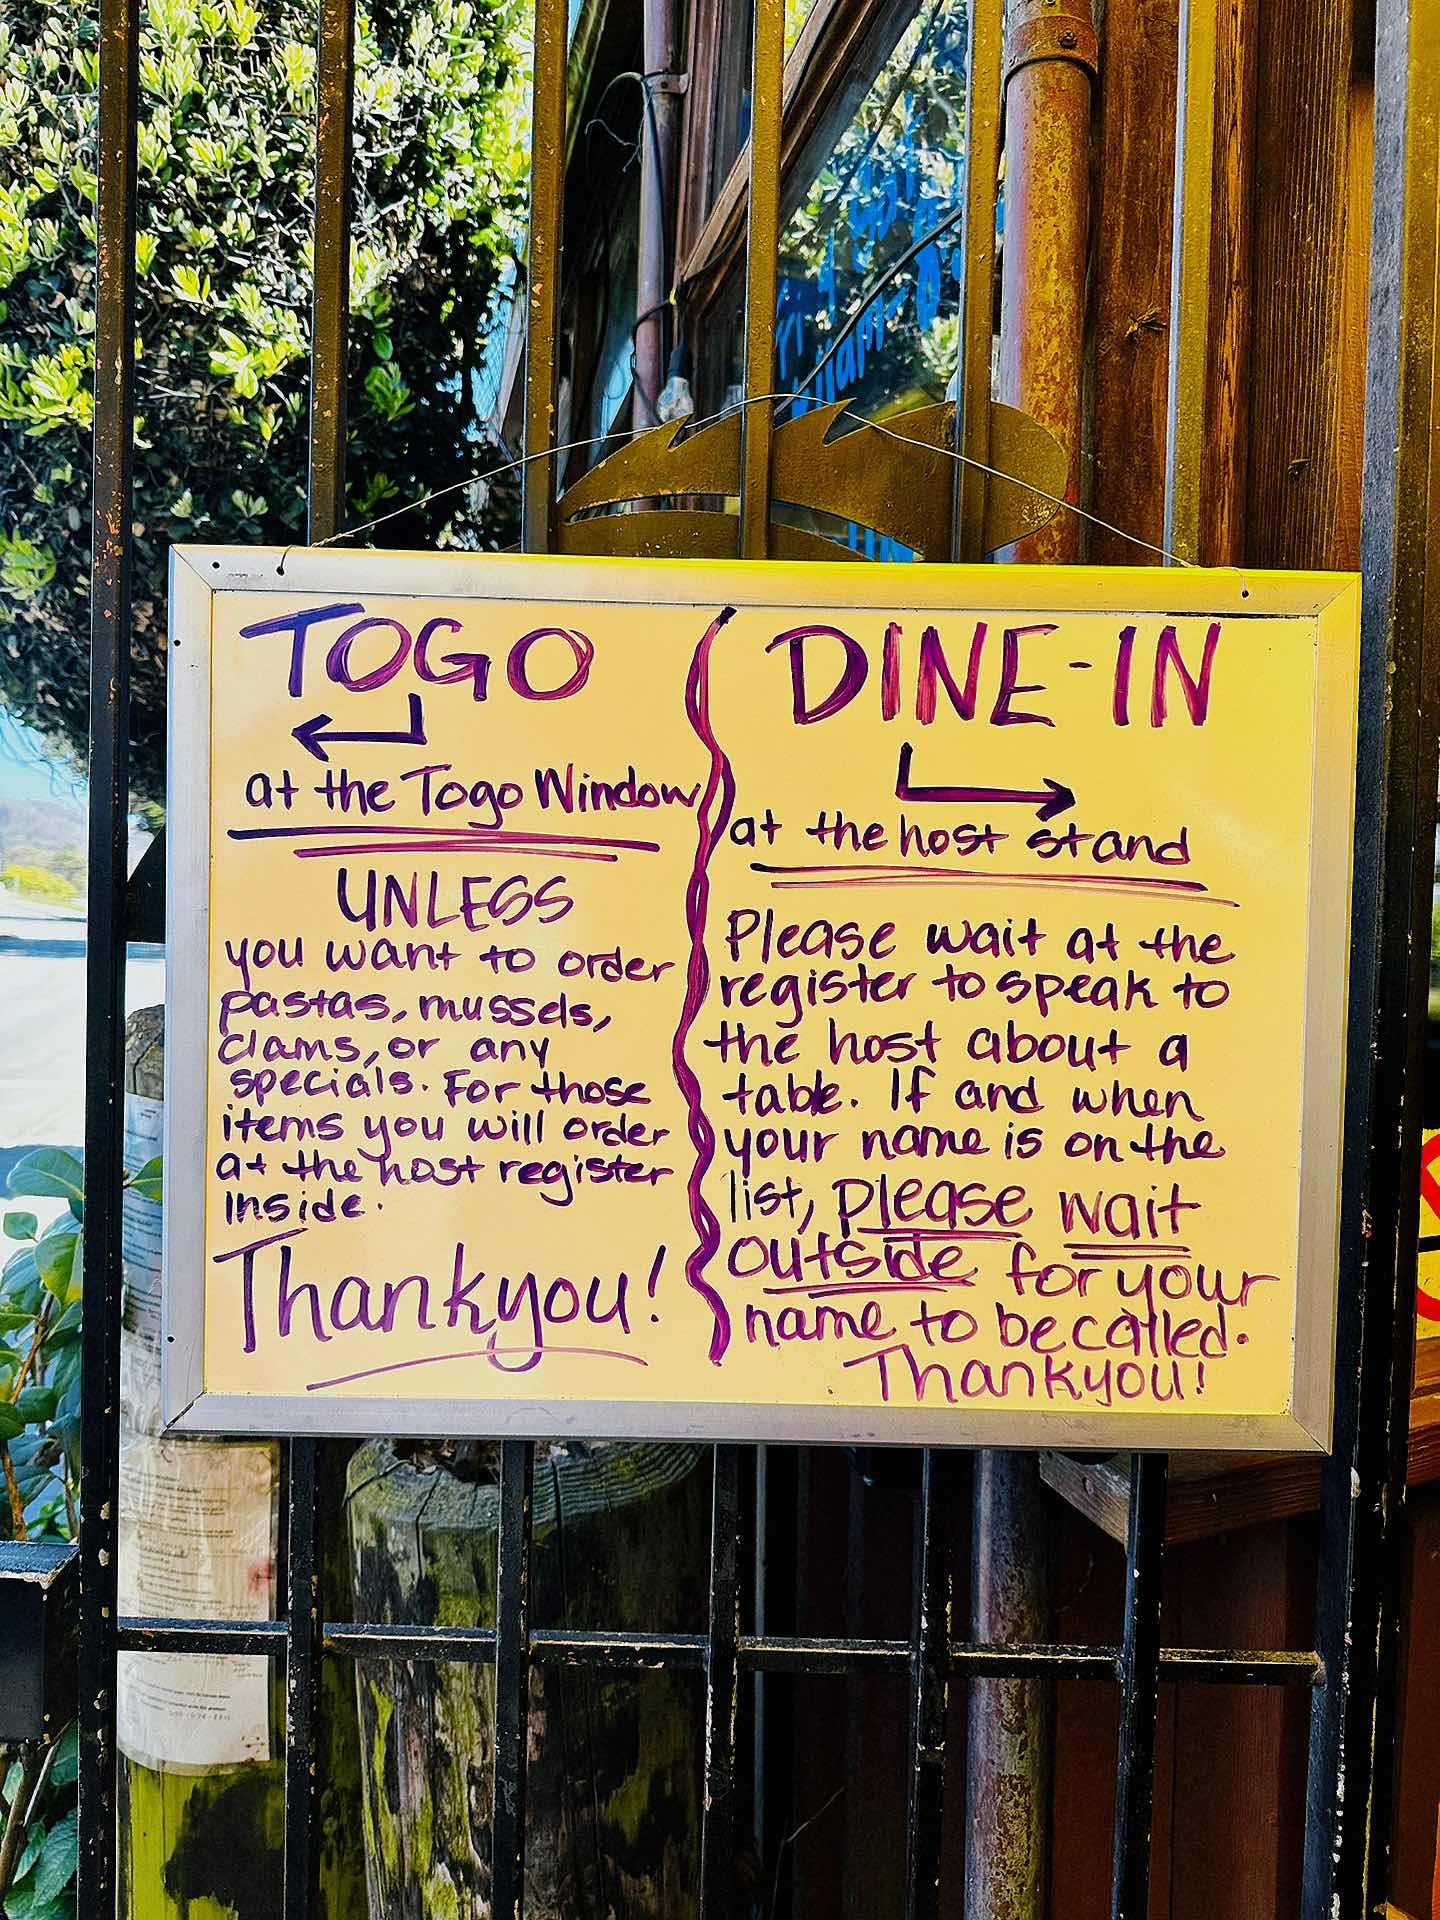 TOGO
at the Togo Window
UNLESS
you want to order
pastas, mussels,
clams, or any
specials. For those
items you will order
at the host register
inside.
Thankyou!
DINE-IN
at the host stand
Please wait at the
register to speak to
the host about a
table. If and when
your name is on the
list, please wait
outside for your
name to be called.
Thankyou!